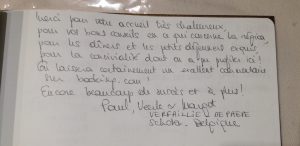 Merci pour votre accueil très chaleureux,
pour vos bons conseils en ce qui concerne la région,
pour les dîners et les petits déjeuners exquis,
pour la convivialité dont on a pu profiter ici!
J'ai laissé certainement un excellent commentaire
sur booking.com!
Encore beaucoup de succès et à plus!
Paul, &
VERFAILLIE - DE PAEPE
Belgique